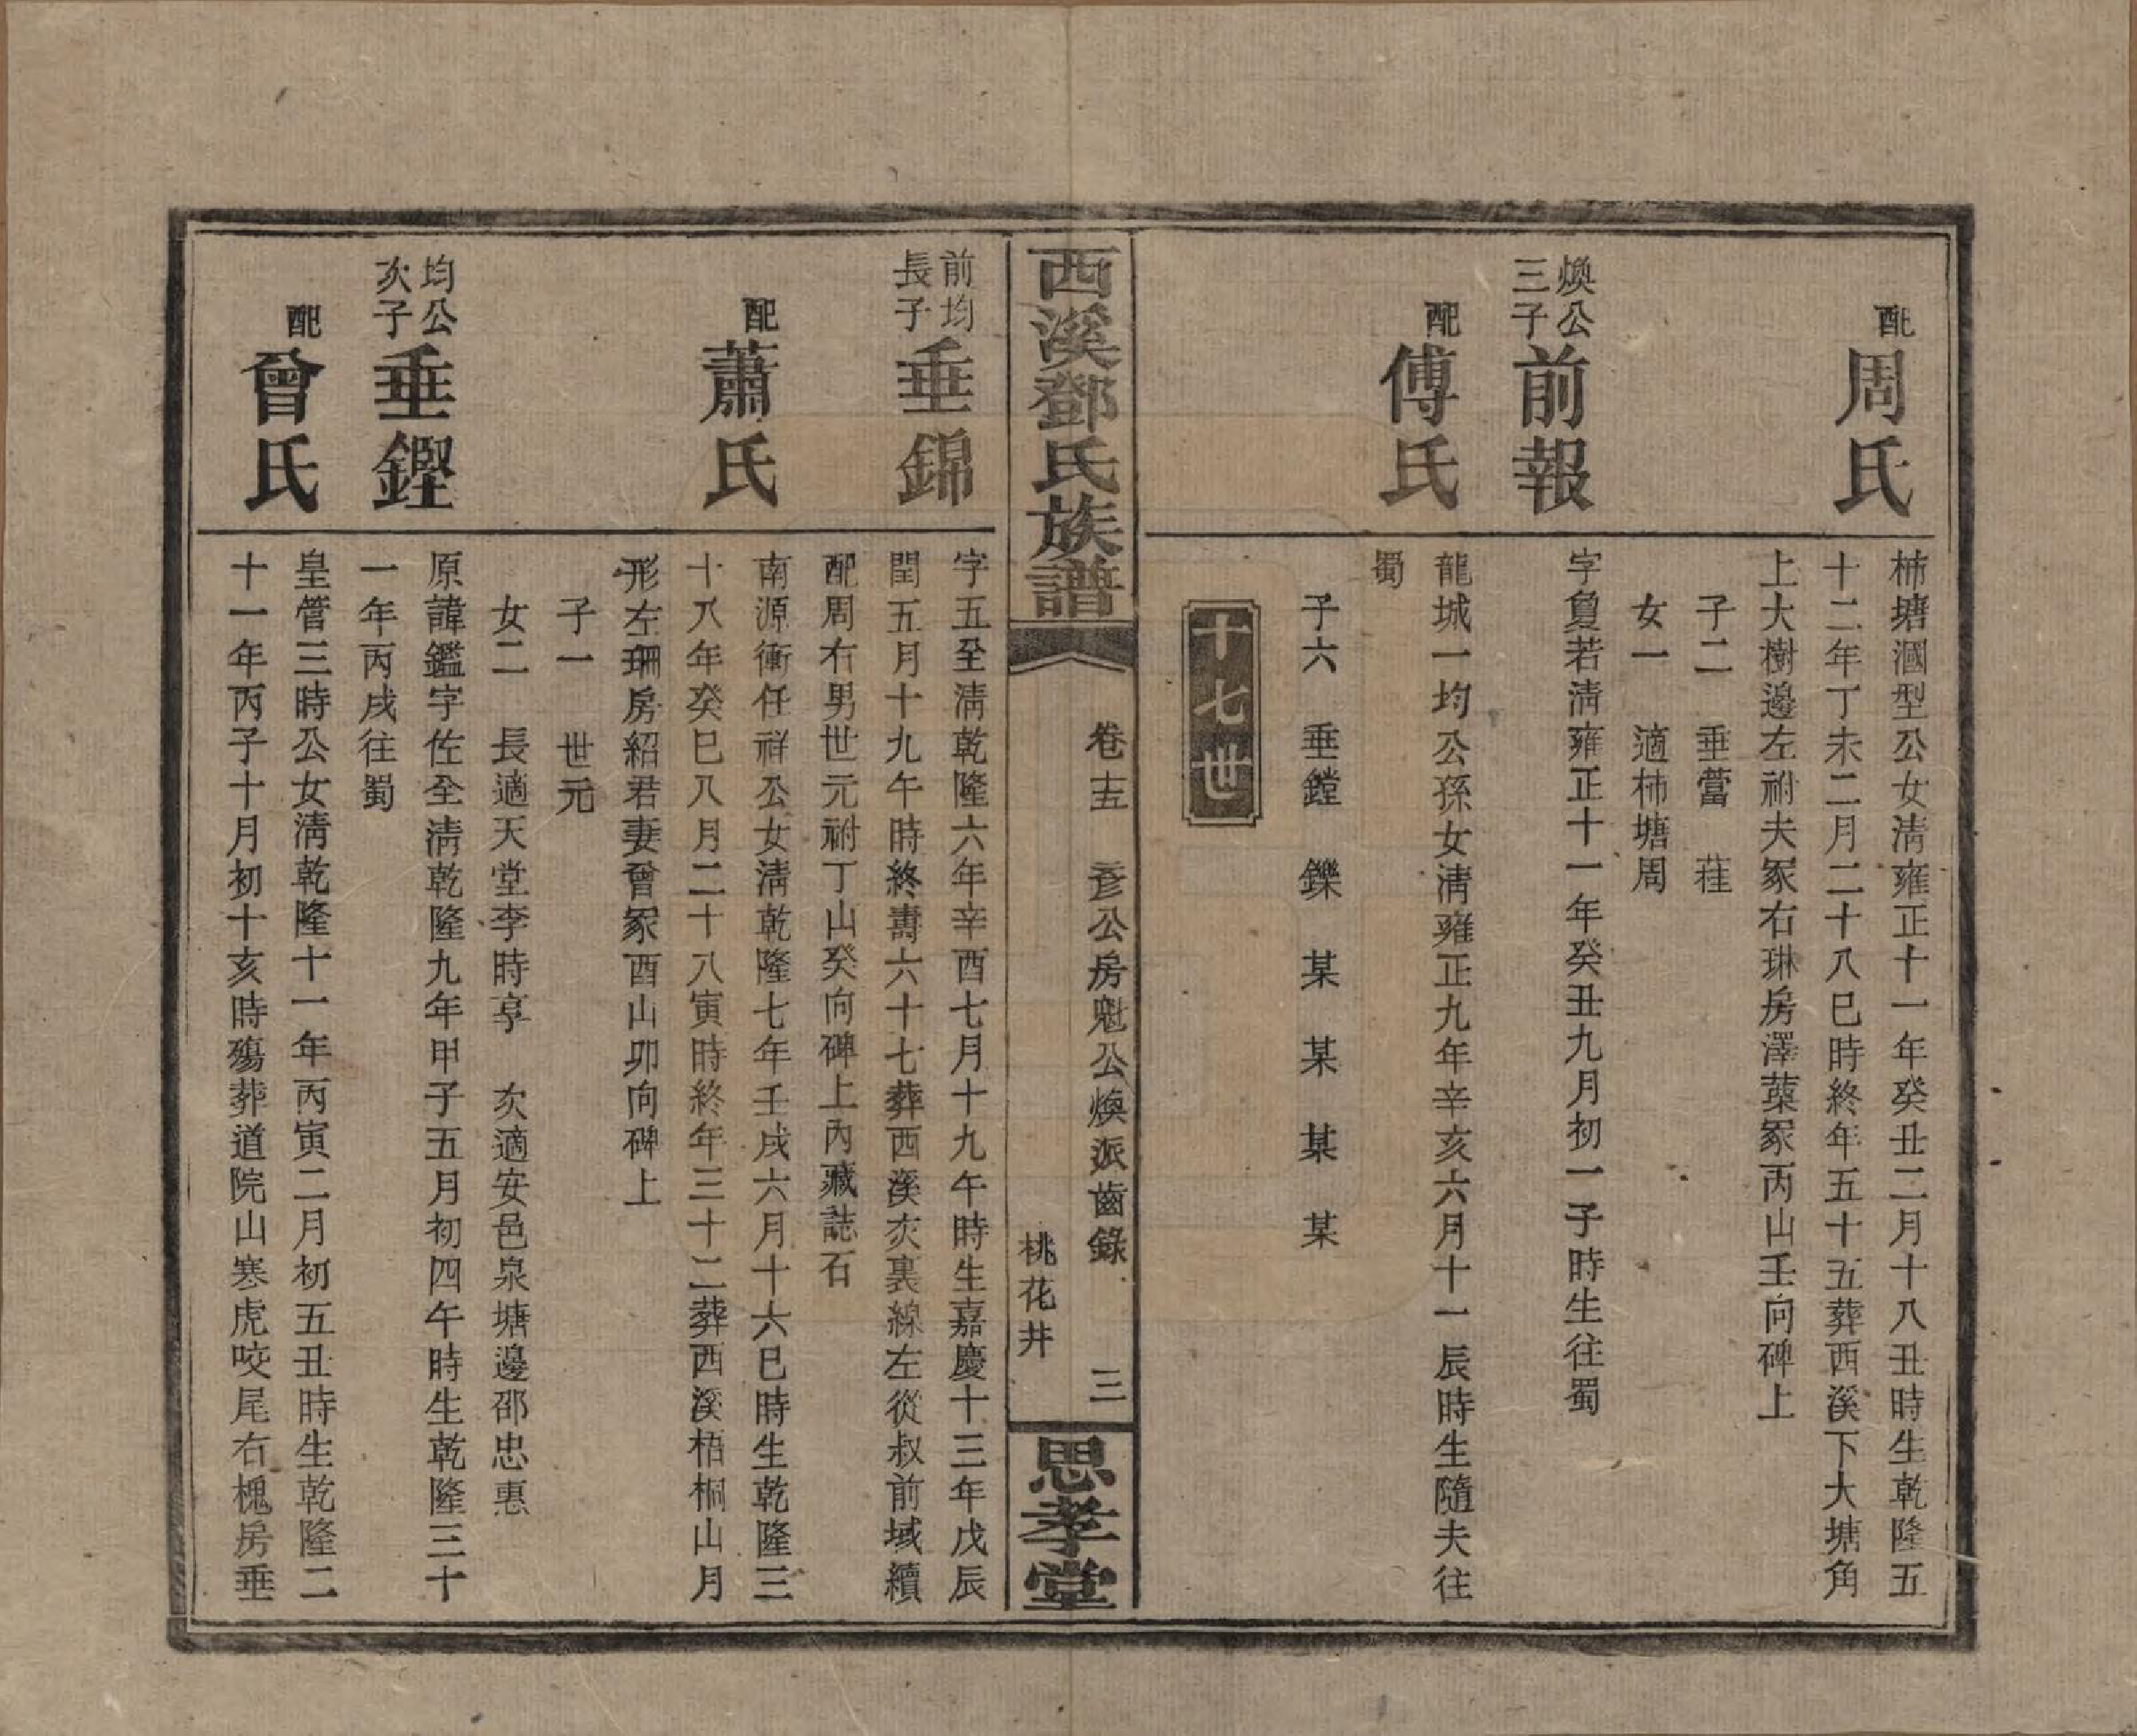 配
周氏
柿塘溷型公女淸雍正十一年癸丑二月十八丑時生乾隆五
十二年丁未二月二十八巳時終年五十五葬西溪下大塘角
上大樹邊左祔夫冢右琳房澤蕖冢丙山壬向碑上
子二 垂當 萑
女一 適柿塘周
煥公
三子
前報
字負若淸雍正十一年癸丑九月初一子時生往蜀
配
傅氏
龍城一均公孫女淸雍正九年辛亥六月十一辰時生隨夫往
蜀
子六 垂鏜 鑠 某 某 某 某
十七世
西溪鄧氏族譜
卷十五 彥公房魁公煥派齒錄 三
桃花井
思孝堂
前均
長子
垂錦
字五至淸乾隆六年辛酉七月十九午時生嘉慶十三年戊辰
閏五月十九午時終壽六十七葬西溪亥裏線左從叔前域續
配周右男世元祔丁山癸向碑上內藏誌石
配
蕭氏
南源衝任祥公女淸乾隆七年壬戌六月十六巳時生乾隆三
十八年癸巳八月二十八寅時終年三十二葬西溪梧桐山月
形左珊房紹君妻曾冢酉山卯向碑上
子一 世元
女二 長適天堂李時亨 次適安邑泉塘邊邵忠惠
均公
次子
垂鏗
原諱鑑字佐全淸乾隆九年甲子五月初四午時生乾隆三十
一年丙戌往蜀
配
曾氏
皇管三時公女淸乾隆十一年丙寅二月初五丑時生乾隆二
十一年丙子十月初十亥時殤葬道院山寒虎咬尾右槐房垂